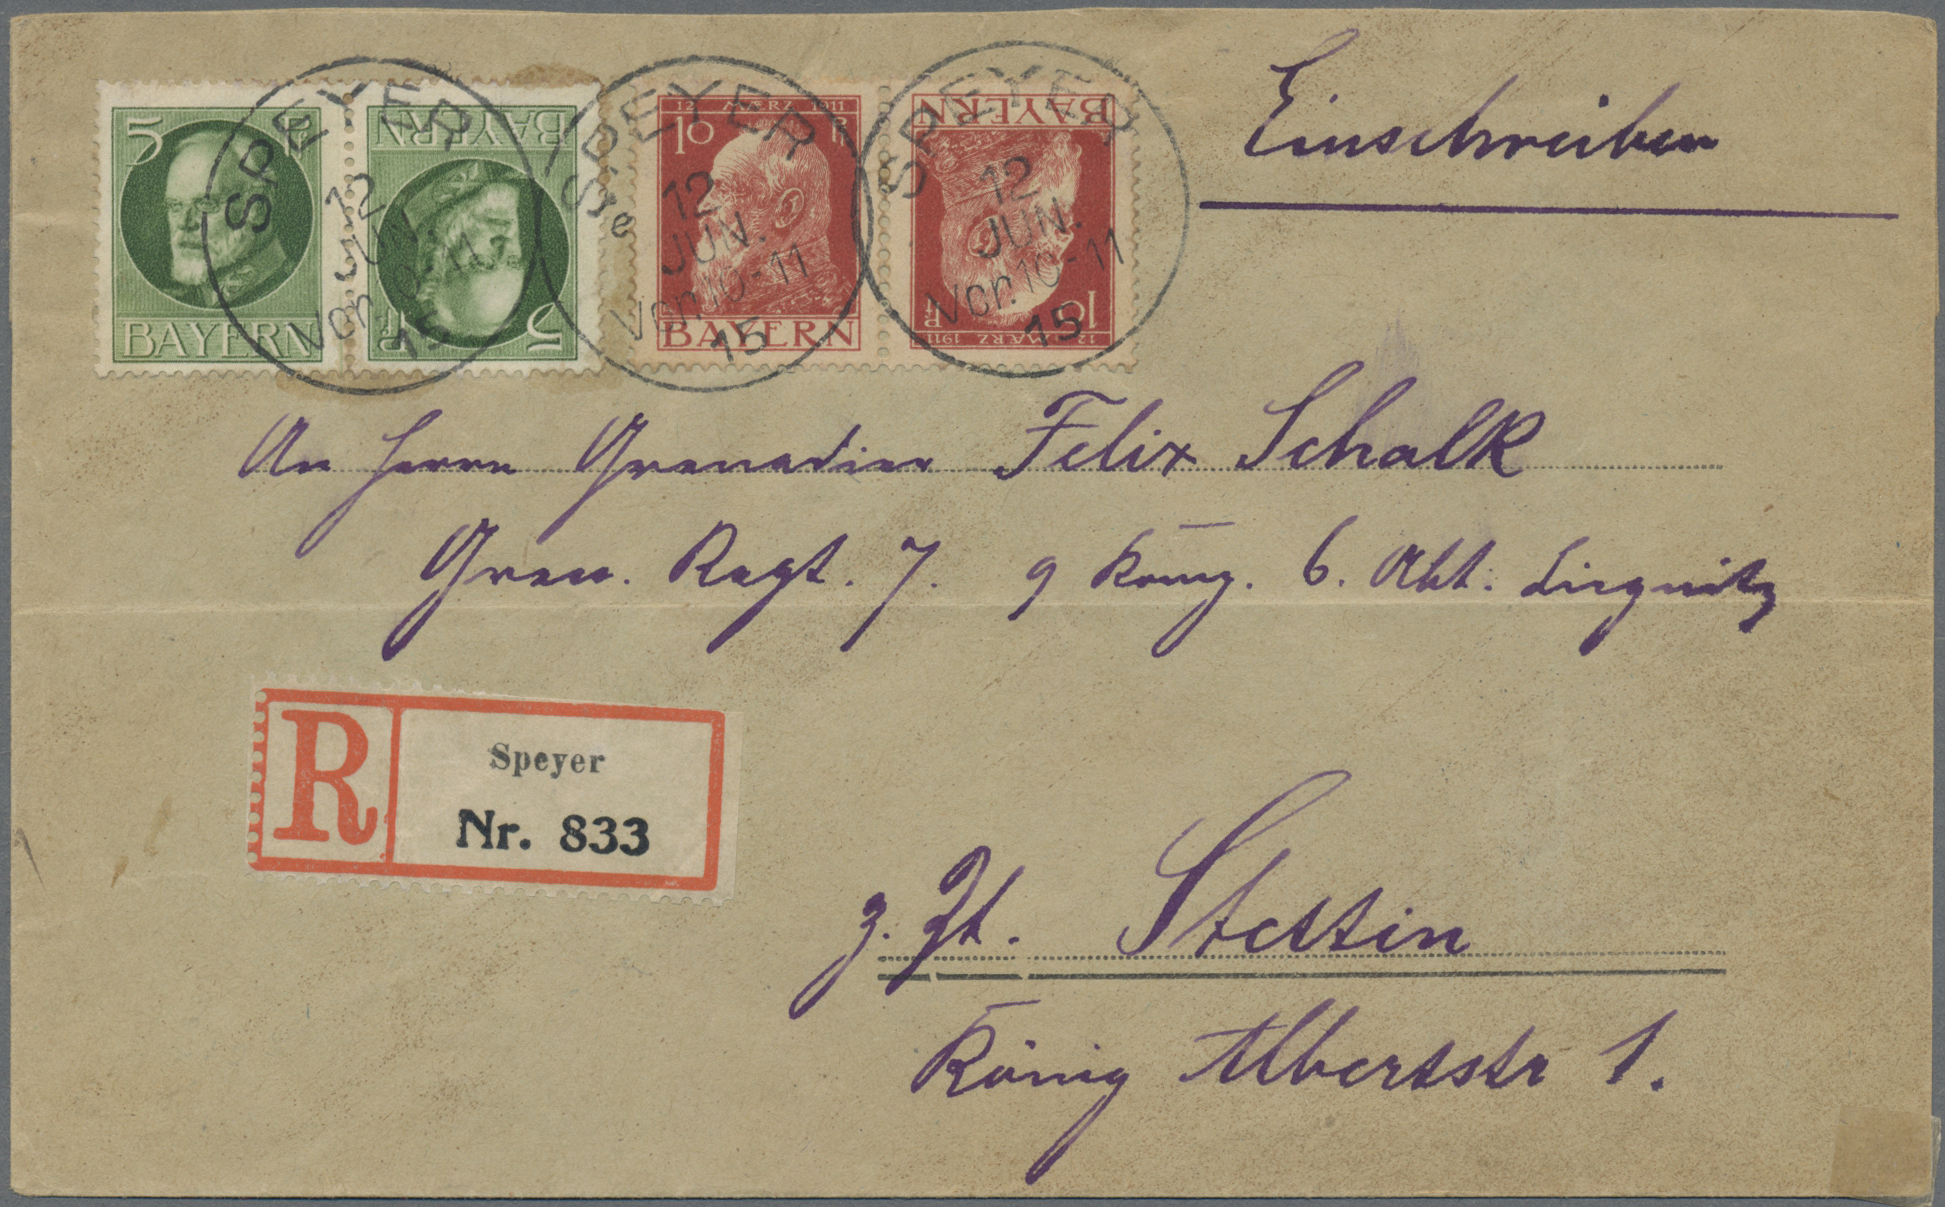 5 BAYERN
BAYERN 5 Pf
12 MÆRZ 1911
10 Pf
BAYERN
BAYERN
10 Pf
12 MÆRZ 1911
SPEYER
12
JUN.
Vor. 10-11
15
SPEYER
12
JUN.
Vor. 10-11
15
SPEYER
12
JUN.
Vor. 10-11
15
Einschreiben
An Herrn Grenadier Felix Schalk
Gren. Regt. 7. 9 Komg. 6. Abt. Liegnitz
R Speyer
Nr. 833
z. Zt. Stettin
König Albertstr 1.